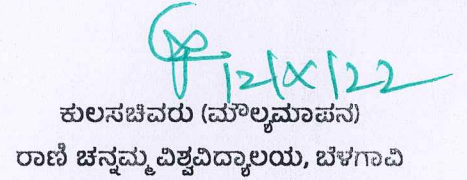 12/X/22
ಕುಲಸಚಿವರು (ಮೌಲ್ಯಮಾಪನ)
ರಾಣಿ ಚನ್ನಮ್ಮ ವಿಶ್ವವಿದ್ಯಾಲಯ, ಬೆಳಗಾವಿ